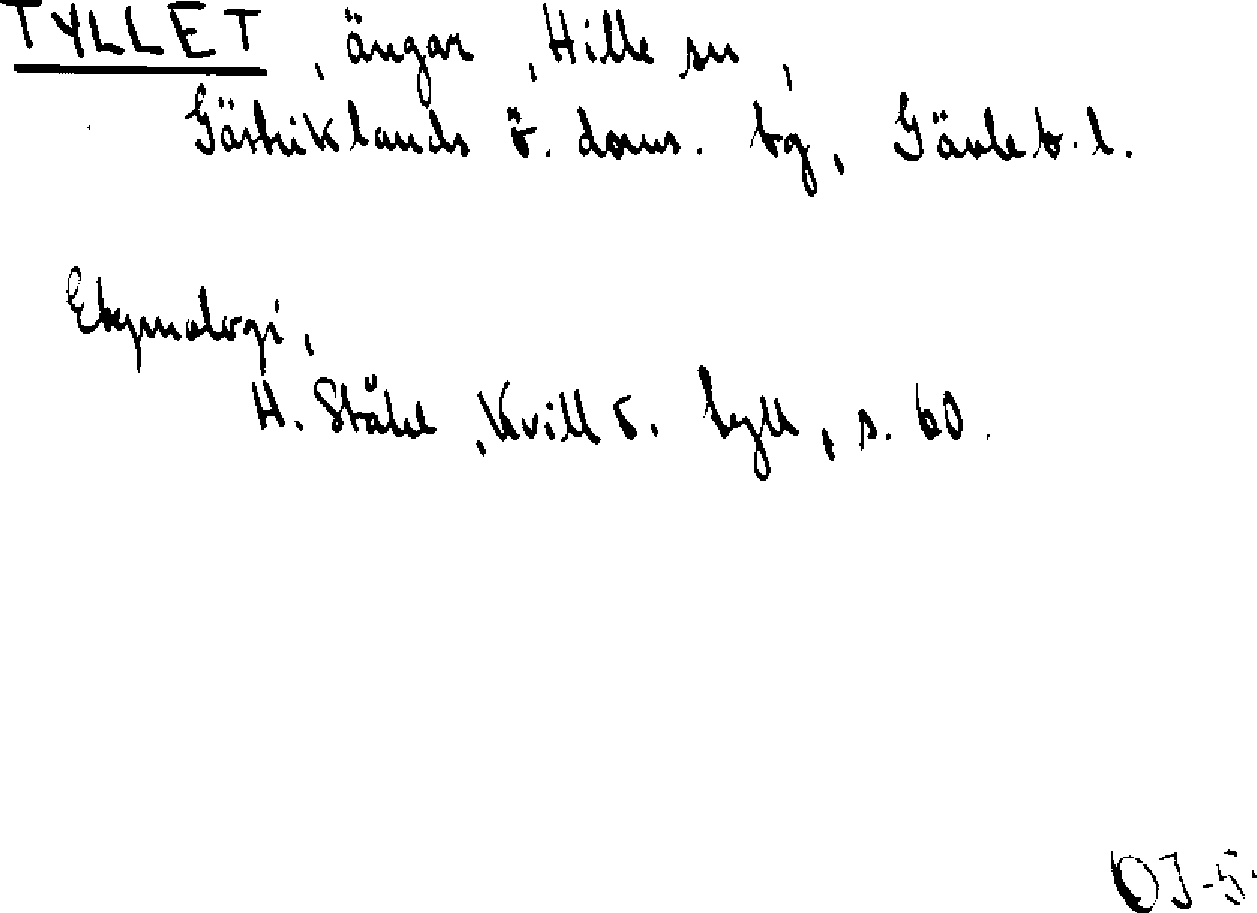 TYLLET, ängar, Hille sn,
Gästriklands ö. doms. bg, Gävleb. l.
Etymologi,
H. Ståhl, Kvill o. tyll, s. 60.
OJ-5.